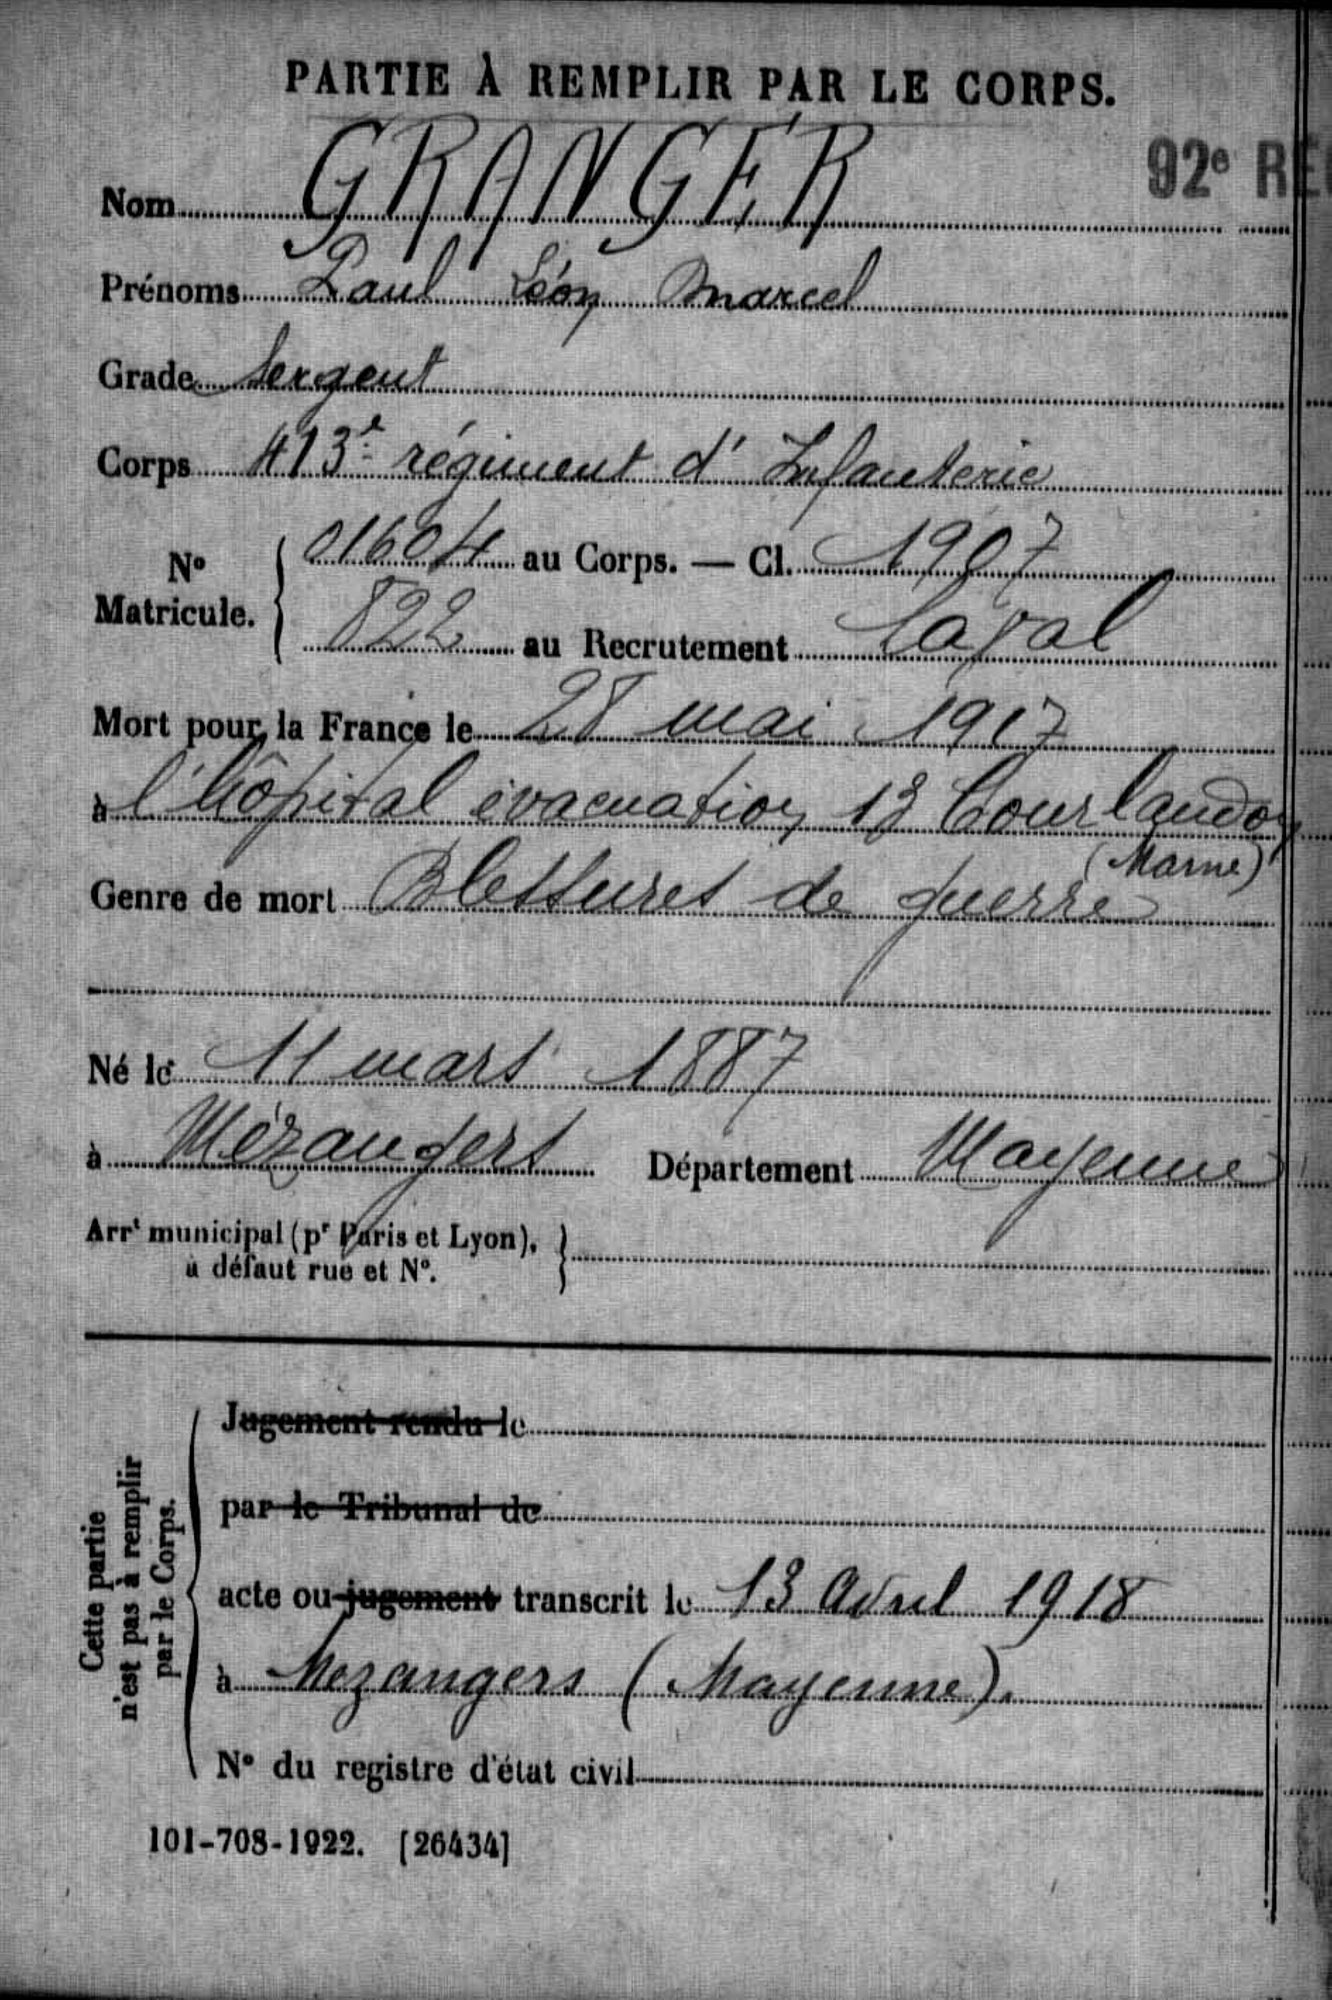 PARTIE À REMPLIR PAR LE CORPS.
92e RÉ
Nom GRANGER
Prénoms Paul Léon Marcel
Grade Sergent
Corps 413e régiment d'Infanterie
No Matricule. { 01604 au Corps. — Cl. 1907
822 au Recrutement Laval
Mort pour la France le 28 mai 1917
à l'hôpital évacuation 13 Courlandon
(Marne)
Genre de mort Blessures de guerre
Né le 11 mars 1887
à Mézangers Département Mayenne
Arrt municipal (pr Paris et Lyon), }
à défaut rue et No.
Cette partie
n'est pas à remplir
par le Corps.
Jugement rendu le
par le Tribunal de
acte ou jugement transcrit le 13 Avril 1918
à Mezangers (Mayenne).
No du registre d'état civil
101-708-1922. [26434]